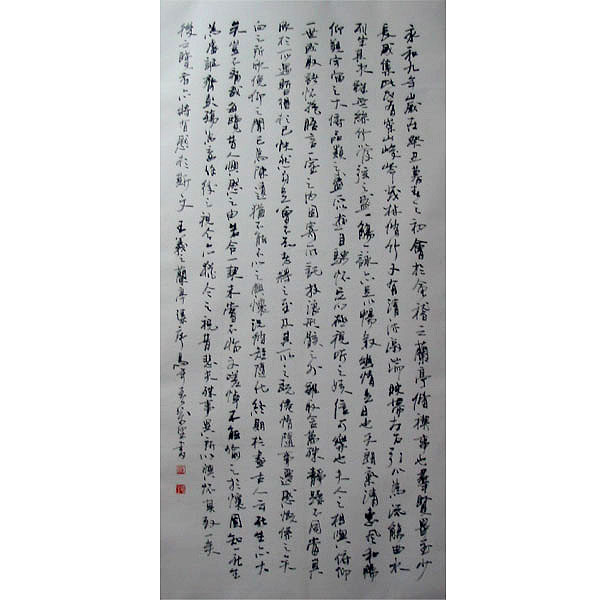 永和九年歲在癸丑暮春之初會於會稽之蘭亭脩禊事也羣賢畢至少
長咸集此地有崇山峻嶺茂林脩竹又有清流激湍映帶左右引以為流觴曲水
列坐其次雖無絲竹管弦之盛一觴一詠亦足以暢敘幽情是日也天朗氣清惠風和暢
仰觀宇宙之大俯察品類之盛所以遊目騁懷足以極視聽之娛信可樂也夫人之相與俯仰
一世或取諸懷抱晤言一室之內因寄所託放浪形骸之外雖取舍萬殊靜躁不同當其
欣於所遇暫得於己快然自足曾不知老之將至及其所之既倦情隨事遷感慨係之矣
向之所欣俛仰之間已為陳迹猶不能不以之興懷況脩短隨化終期於盡古人云死生亦大
矣豈不痛哉每覽昔人興感之由若合一契未嘗不臨文嗟悼不能喻之於懷固知一死生
為虛誕齊彭殤為妄作後之視今亦猶今之視昔悲夫殊事異所以興懷其致一
後之覽者亦將有感於斯文 王羲之蘭亭集序 書